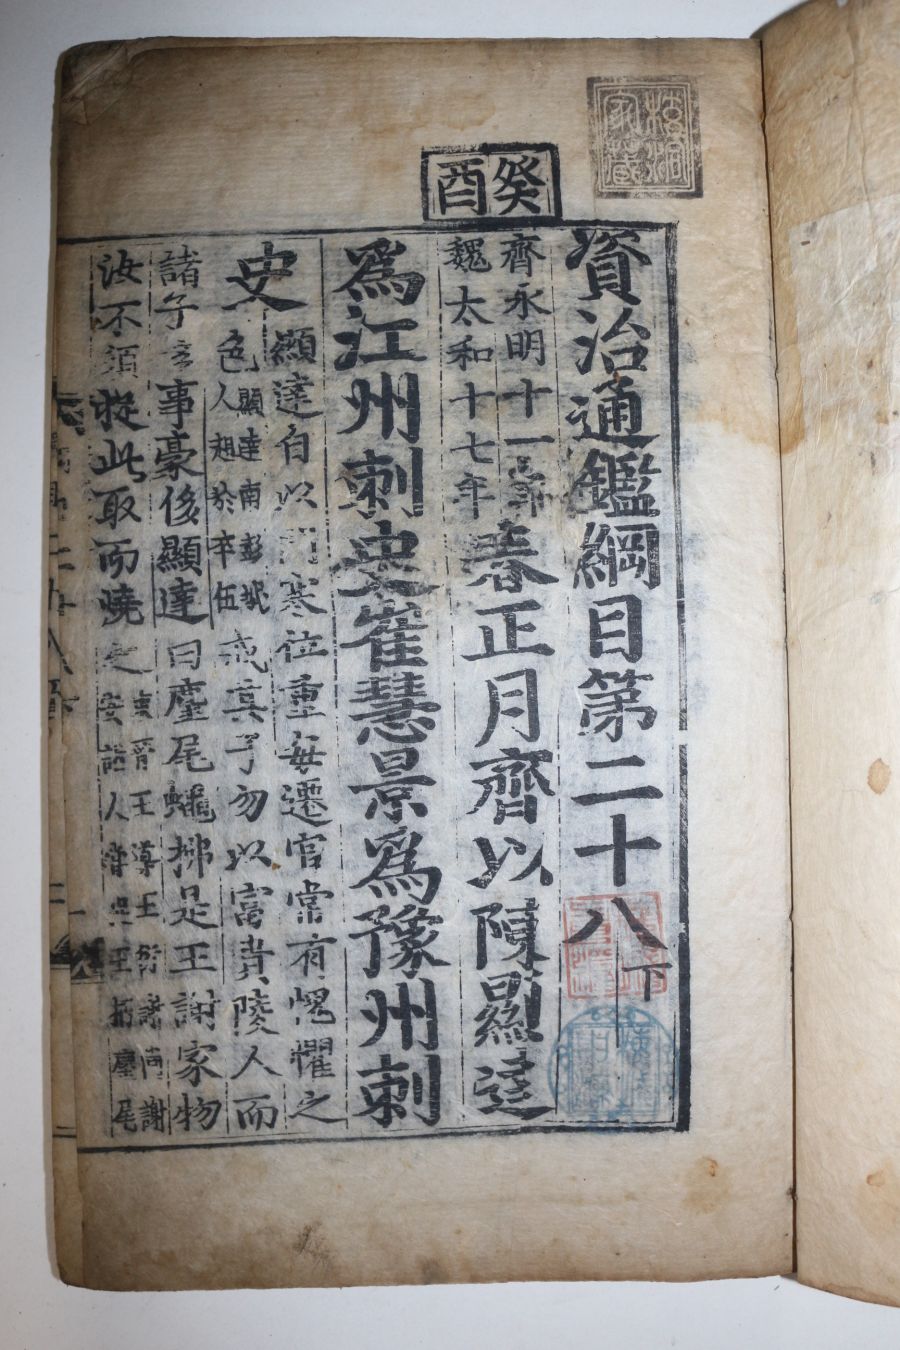 癸酉
資治通鑑綱目第二十八下
齊永明十一年
魏太和十七年
春正月齊以陳顯達
爲江州刺史崔慧景爲豫州刺
史
顯達自以門寒位重每遷官常有愧懼之
色
顯達南彭城
人起於卒伍
戒其子勿以富貴陵人而
諸子
事豪侈顯達曰麈尾蠅拂是王謝家物
汝不須捉此取而燒之
東晉王導王衍謝尚謝
安諸人
王捉麈尾